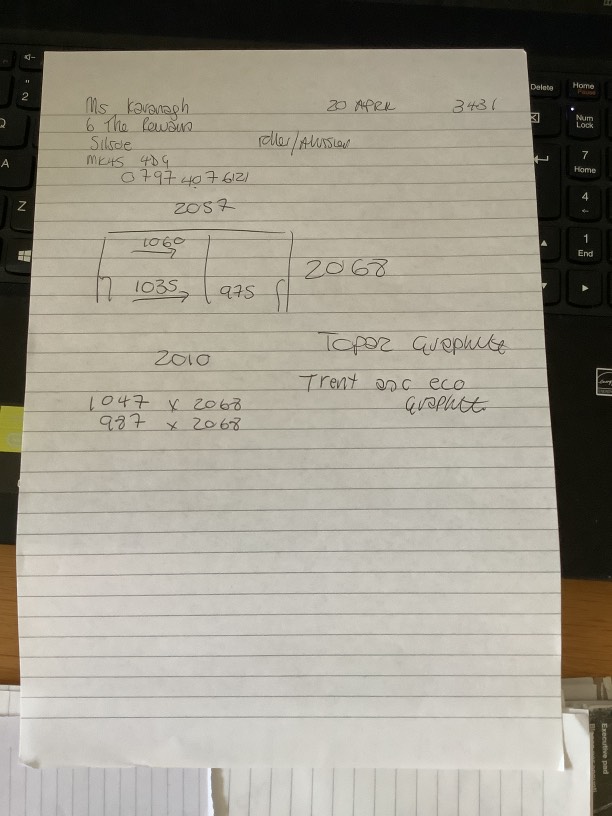 Ms Kavanagh 20 APRIL 3431
6 The
Silsoe roller/
MK45 4DG
0797 407 6121
2057
1060
1035 975 2068
2010
Topaz Graphite
Trent asc eco
Graphite
1047 x 2068
987 x 2068
Delete
Home
Pause
Num
Lock
2
Q
A
Z
7
Home
4
←
1
End
Executive pad